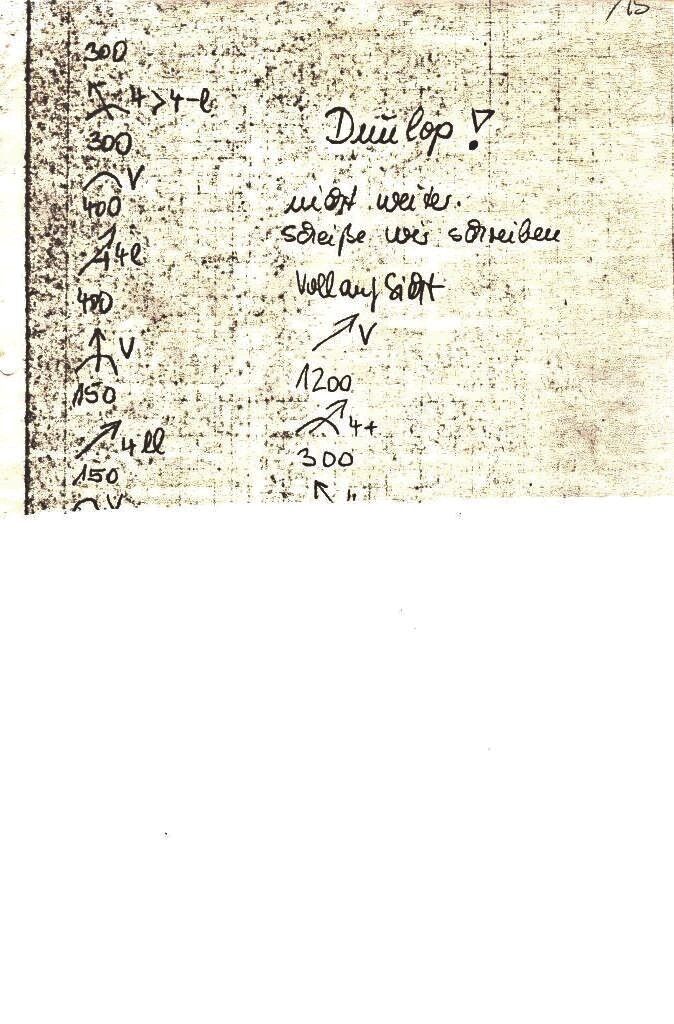 /15
300
4>4-l
300
V
400
4l
400
V
150
4ll
150
V
Dunlop!
nicht weiter.
scheiße wir schreiben
Voll auf Sicht
V
1200
4+
300